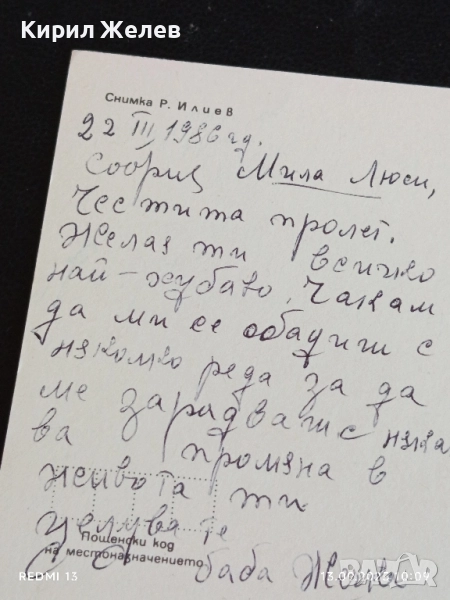 Кирил Желев
Снимка Р. Илиев
22 III, 1986 гд.
Мила Люси,
Честита пролет.
Желая ти всичко
най-хубаво. Чакам
да ми се обадиш с
няколко реда за да
ме зарадваш с няка
ва промяна в
живота ти
целува те
Пощенски код
на местоназначението
баба
BAZAR
REDMI 13